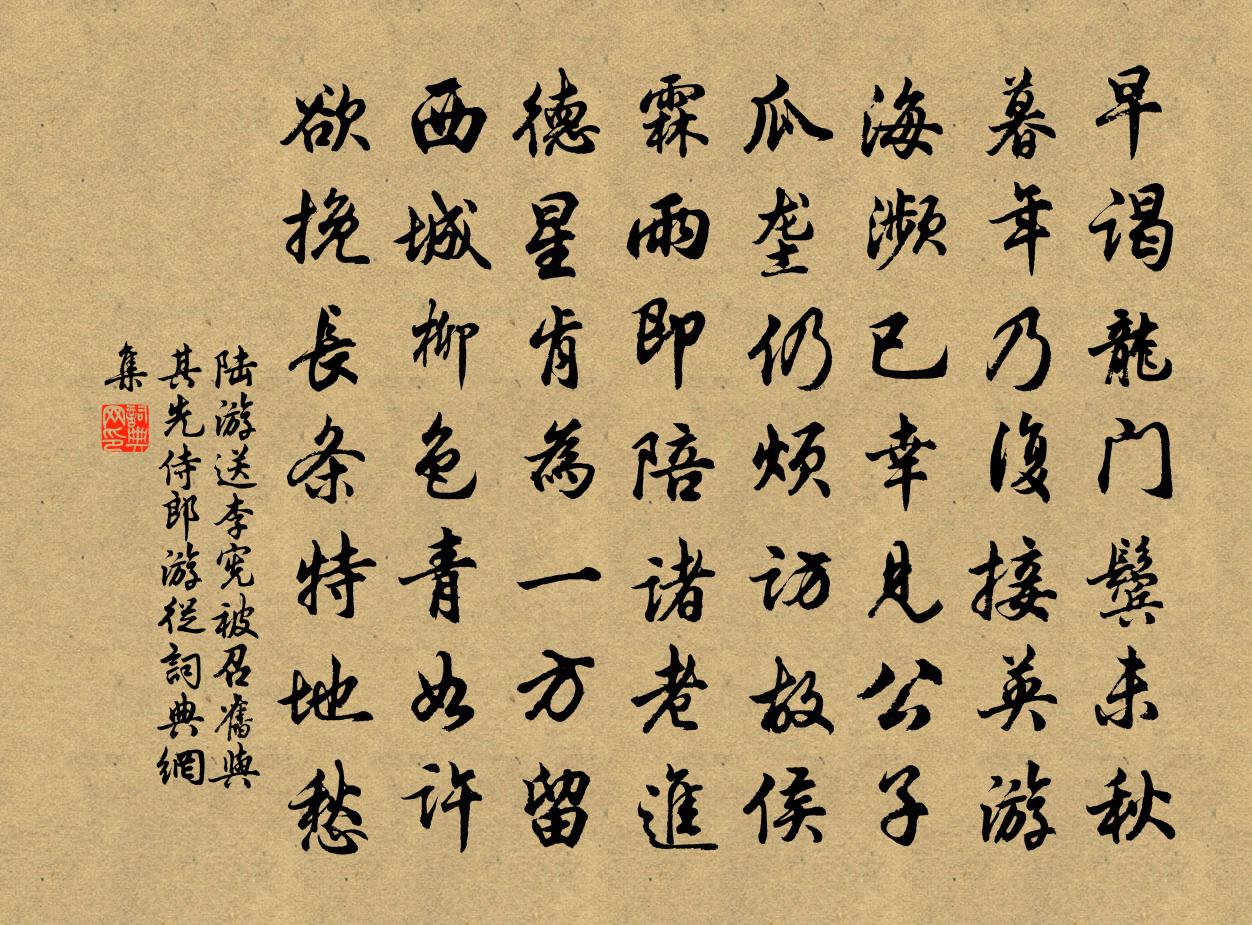 早谒龍门鬓未秋
暮年乃復接英游
海瀕已幸見公子
瓜垄仍烦访故侯
霖雨即陪诸老進
德星肯為一方留
西城柳色青如许
欲挽長条特地愁
陆游送李宪被召舊與
其先侍郎游從詞典網
集
詞典网印